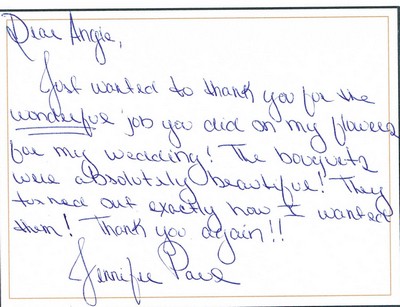 Dear Angie,
Just wanted to thank you for the
wonderful job you did on my flowers
for my wedding! The bouquets
were absolutely beautiful! They
turned out exactly how I wanted
them! Thank you again!!
Jennifer